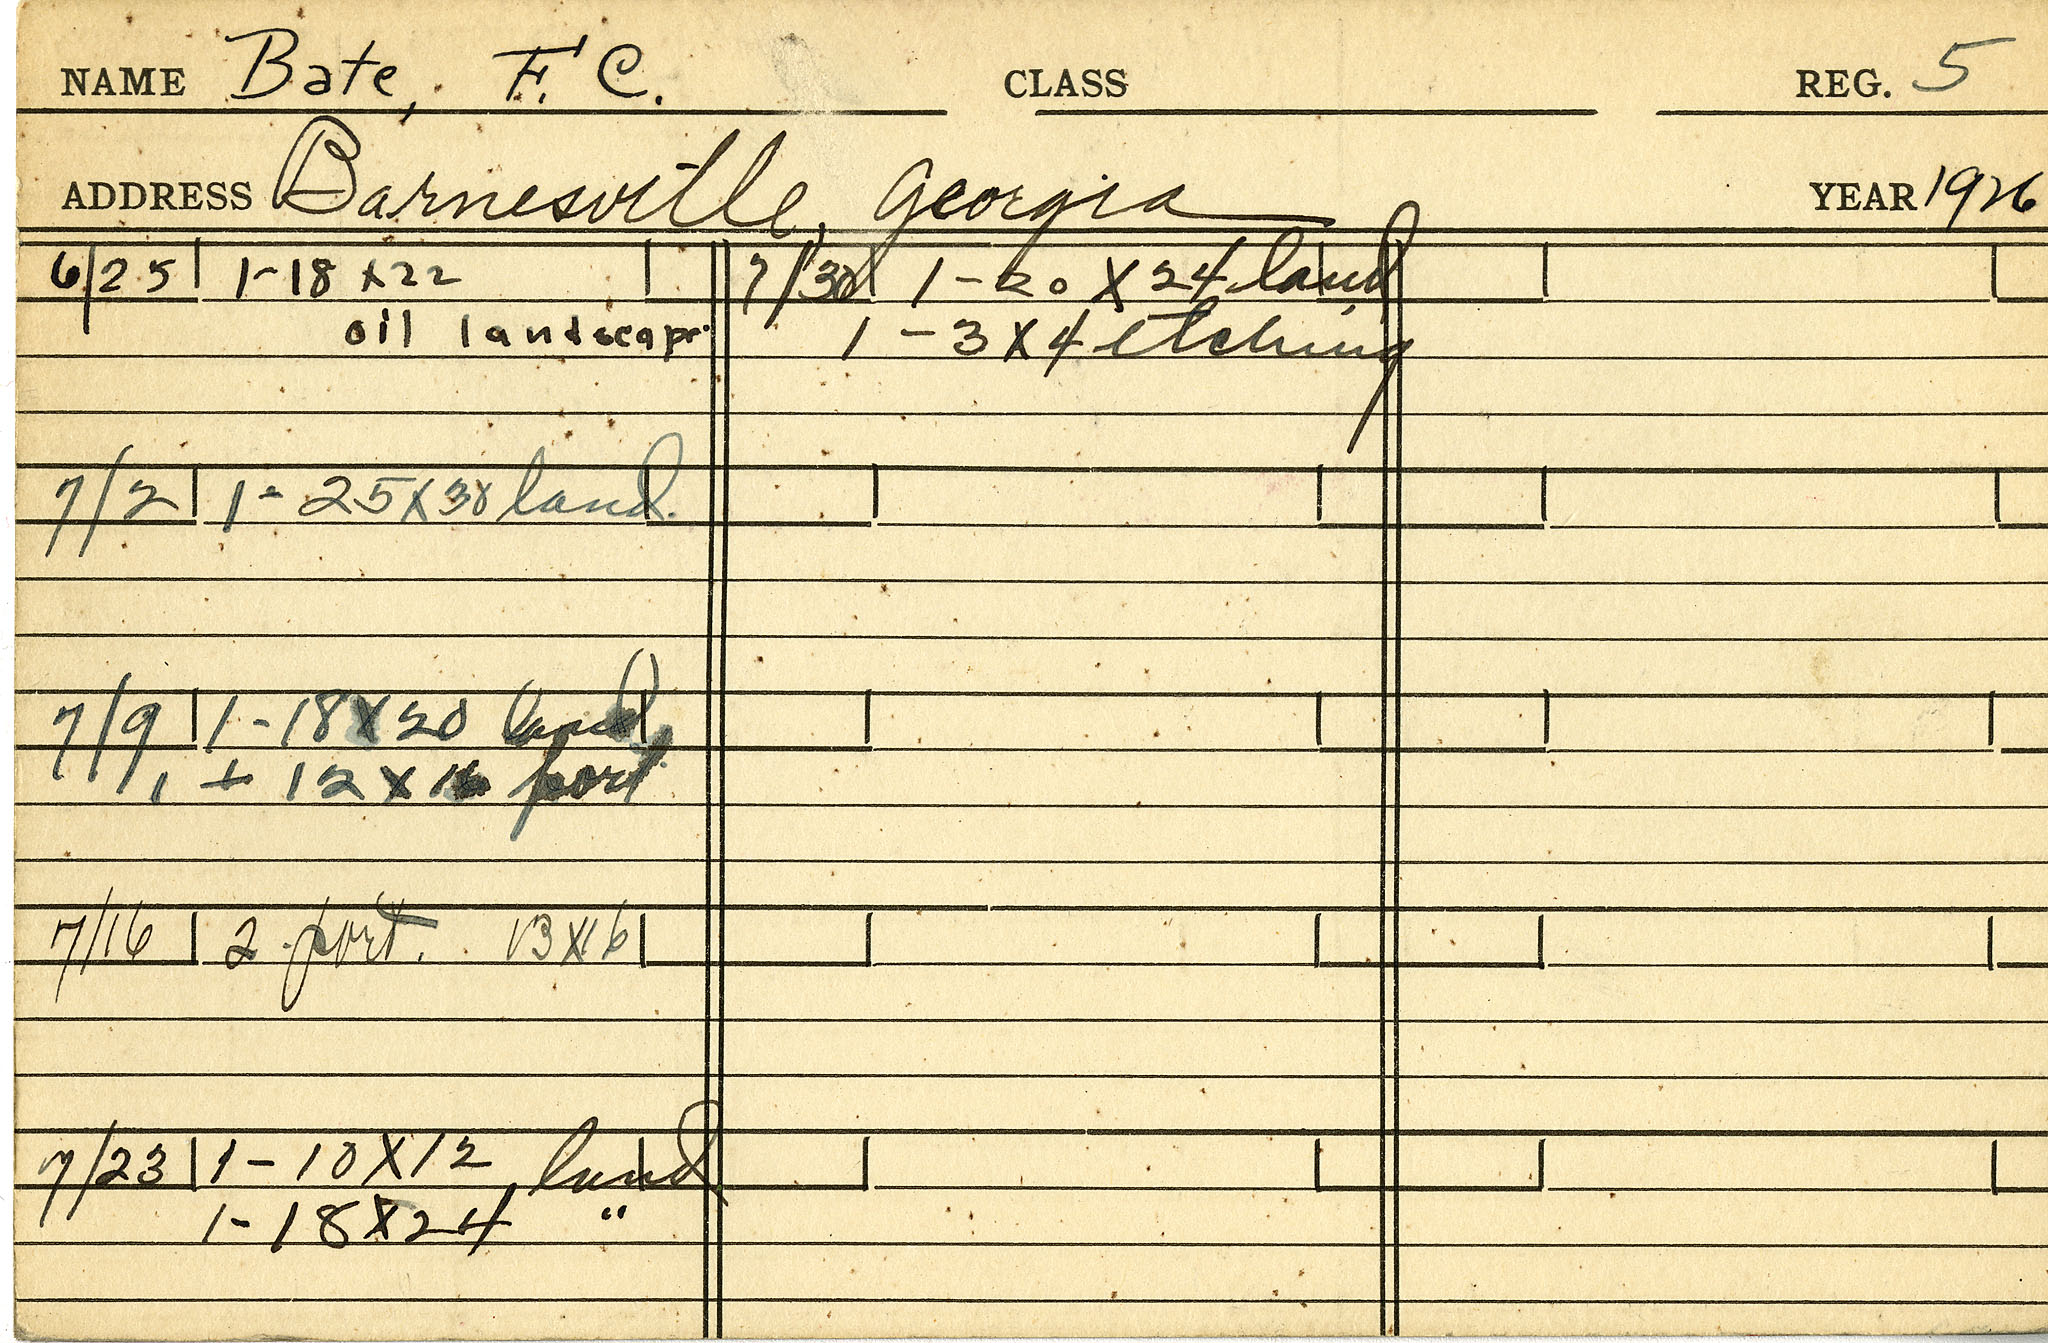 NAME Bate, F. C. CLASS REG. 5
ADDRESS Barnesville, Georgia YEAR 1926
6/25 1-18 x22
oil landscape
7/2 1- 25X30 land.
7/9 1-18X20 land
1 - 12 X 16 port
7/16 2 port. 13X16
7/23 1-10X12 land
1-18X24 "
7/30 1-20 X 24 land
1-3X4 etching